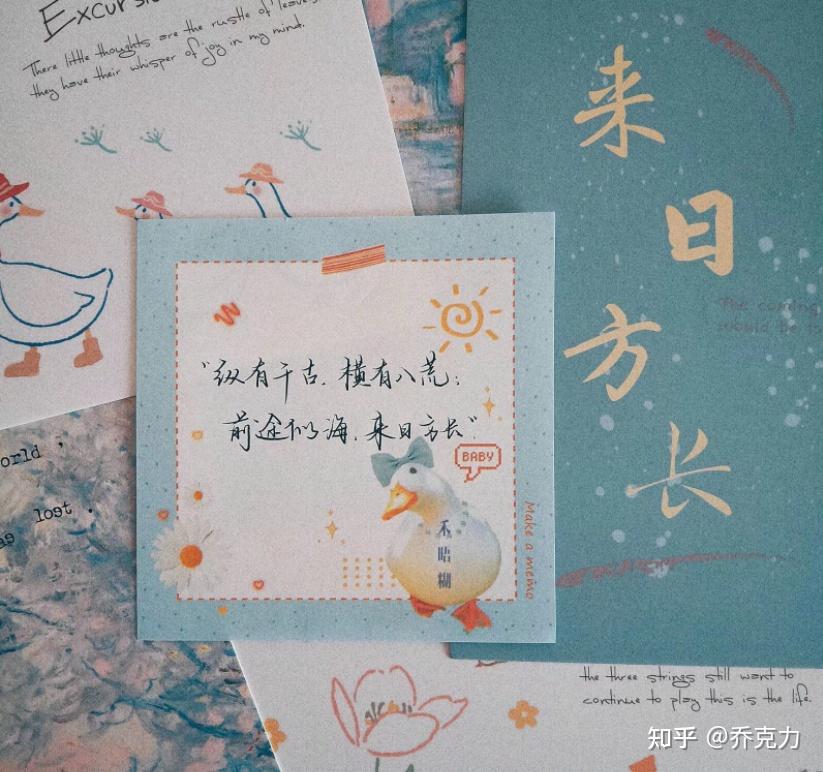 Excursi
There little thoughts are the rustle of leaves;
they have their whisper of joy in my mind.
来
日
方
长
The coming
would be lo
“纵有千古，横有八荒；
前途似海，来日方长”
BABY
禾
晤
糊
Make a memo
orld ,
as lost .
the three strings still want to
continue to play this is the life.
知乎 @乔克力